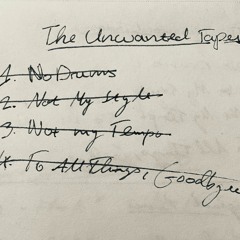 The Unwanted Tapes
1. No Drums
2. Not My Style
3. Not my Tempo
4. To All Things, Goodbye